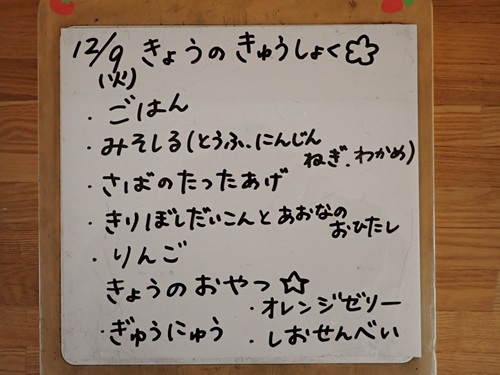 12/9 きょうの きゅうしょく
(火)
・ごはん
・みそしる(とうふ、にんじん
ねぎ、わかめ)
・さばのたったあげ
・きりぼしだいこんと あおなの
おひたし
・りんご
きょうのおやつ☆
・オレンジゼリー
・ぎゅうにゅう ・しおせんべい